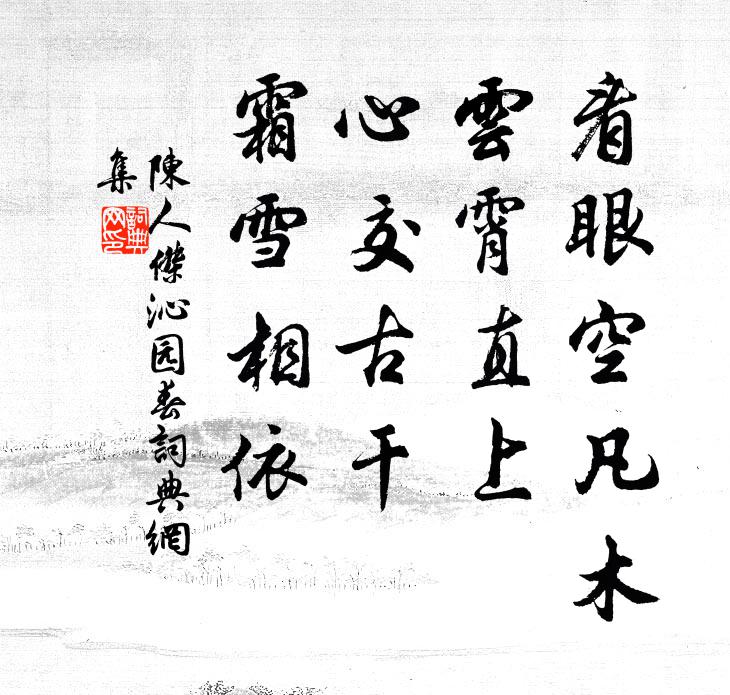 着眼空凡木
雲霄直上
心交古干
霜雪相依
陳人傑沁园春詞典網
集
詞典
网印